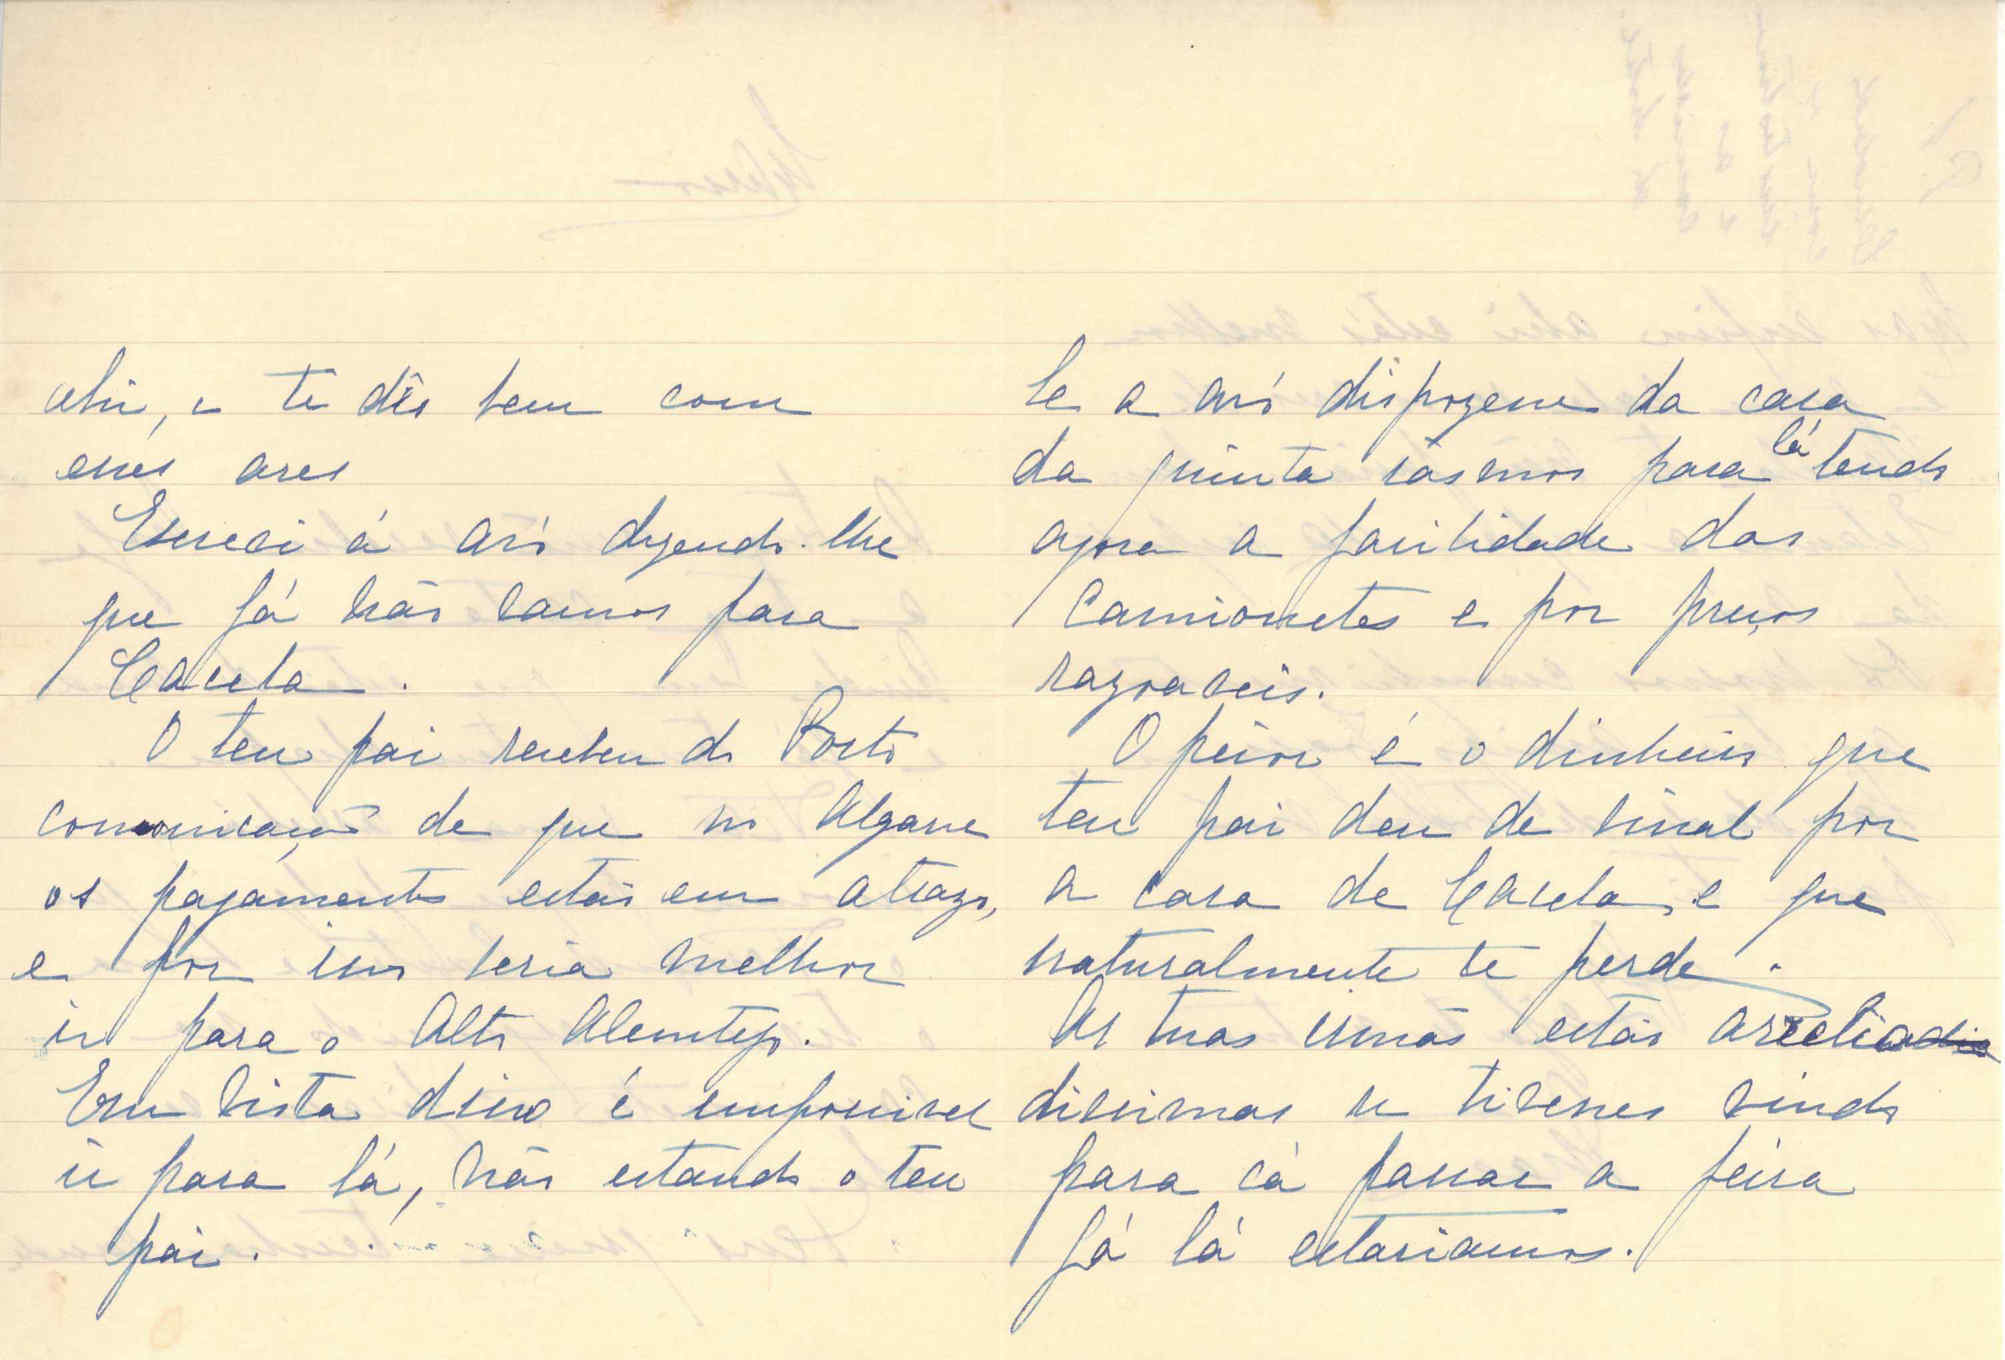 ahi, e te dês bem com
esses ares
Escreci á avó dizendo-lhe
que já não vamos para
Cacela.
O teu pai recebeu do Porto
comunicação de que no Algarve
os pagamentos estão em atrazo,
e por isso seria melhor
ir para o Alto Alemtejo.
Em vista disso é impossivel
ir para lá, não estando o teu
pai.
Se a avó dispozesse da casa
da quinta iásmos para lá tendo
agora a facilidade das
Camionetes e por preços
razoaveis.
O peior é o dinheiro que
teu pai deu de sinal por
a casa de Cacela, e que
naturalmente se perde.
As tuas irmãs estão
dissimas se tivesses vindo
para cá passar a feira
já lá estariamos.